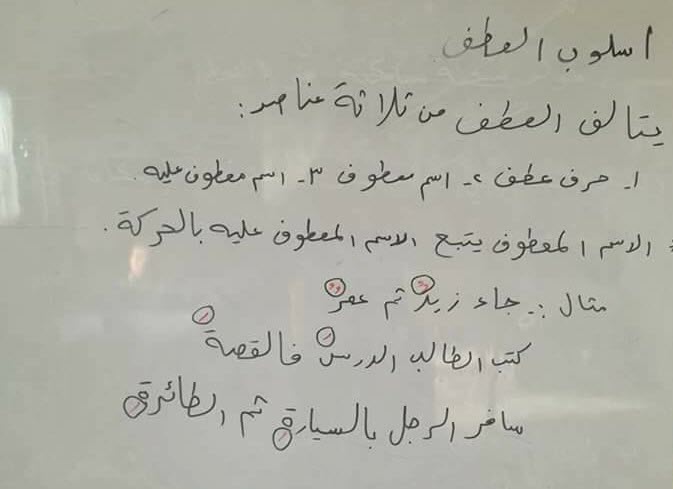 اسلوب العطف
يتالف العطف من ثلاثة عناصر:
١- حرف عطف ٢- اسم معطوف ٣- اسم معطوف عليه.
* الاسم المعطوف يتبع الاسم المعطوف عليه بالحركة.
مثال :- جاء زيدٌ ثم عمرٌ
كتب الطالب الدرسَ فالقصةَ
سافر الرجل بالسيارةِ ثم الطائرةِ